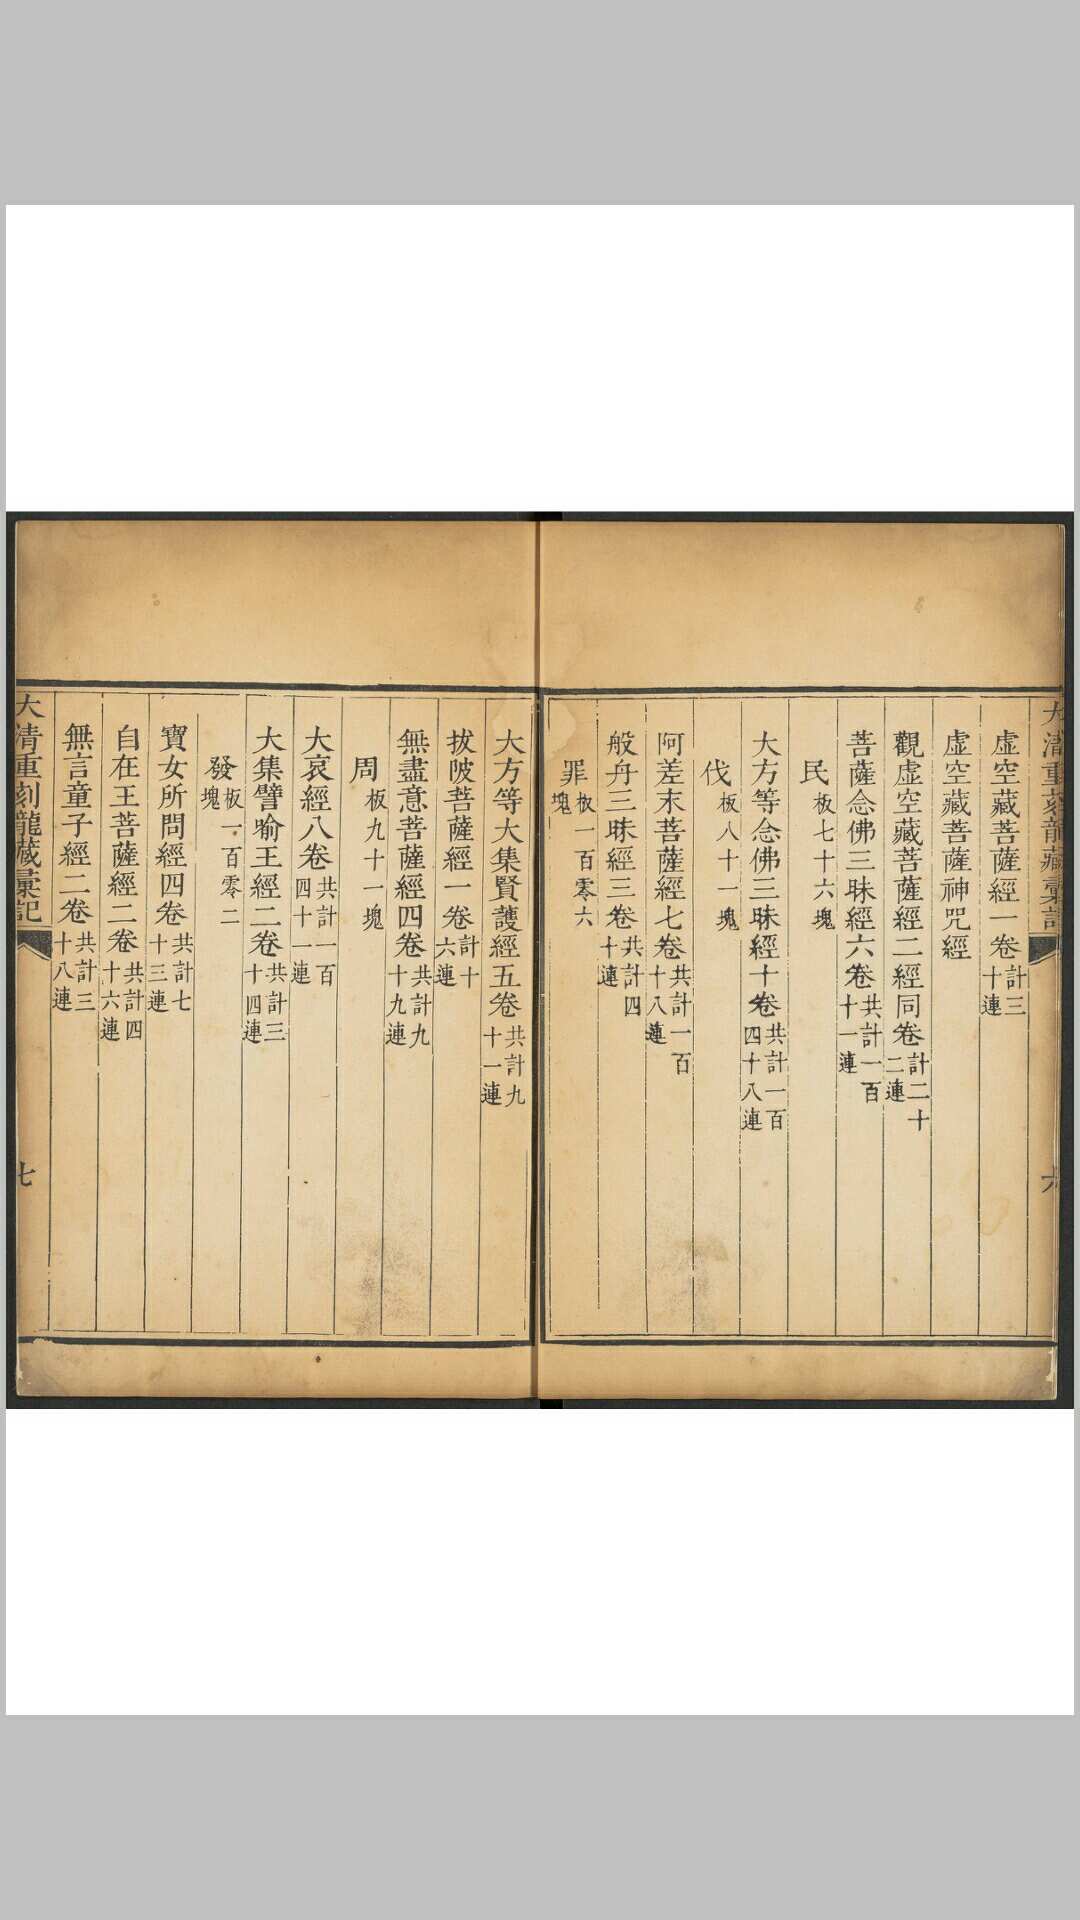 大清重刻龍藏彙記
六
虛空藏菩薩經一卷計三十連
虛空藏菩薩神咒經
觀虛空藏菩薩經二經同卷計二十二連
菩薩念佛三昧經六卷共計一百十一連
民板七十六塊
大方等念佛三昧經十卷共計一百四十八連
伐板八十一塊
阿差末菩薩經七卷共計一百十八連
般舟三昧經三卷共計四十連
罪板一百零六塊
大方等大集賢護經五卷共計九十一連
拔陂菩薩經一卷計十六連
無盡意菩薩經四卷共計九十九連
周板九十一塊
大哀經八卷共計一百四十一連
大集譬喻王經二卷共計三十四連
發板一百零二塊
寶女所問經四卷共計七十三連
自在王菩薩經二卷共計四十六連
無言童子經二卷共計三十八連
大清重刻龍藏彙記
七